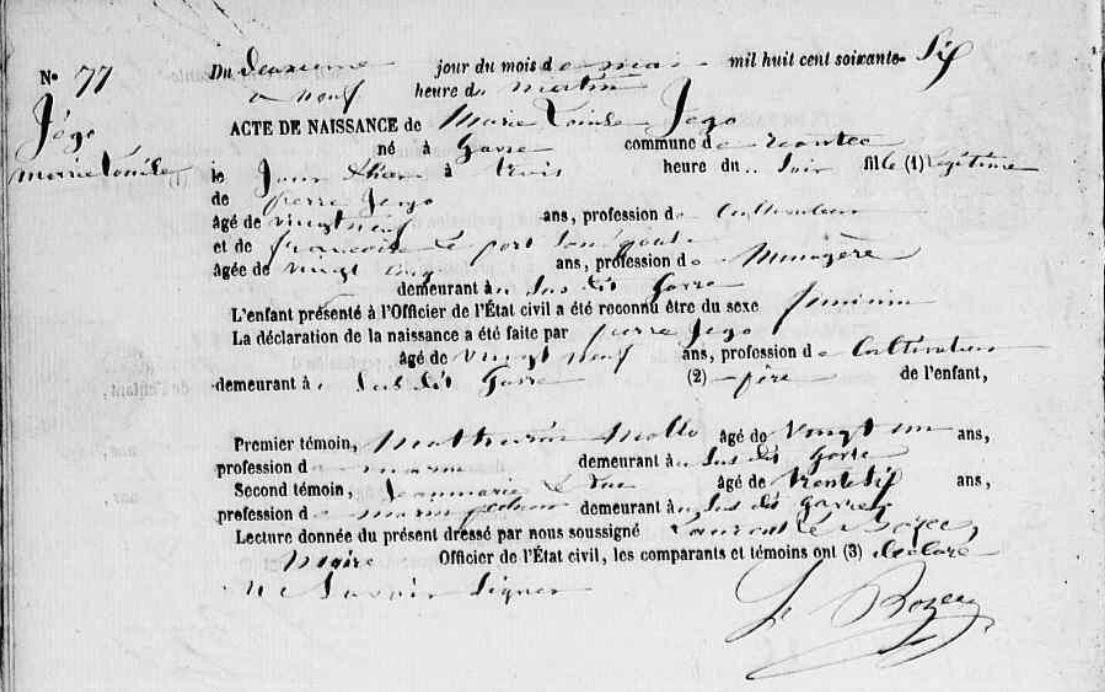 N° 77
Jégo
marie Louise
Du deuxieme jour du mois de mai mil huit cent soixante-six
a neuf heure du matin
ACTE DE NAISSANCE de Marie Louise Jego
né à Gavre commune de
le Jour d'hier à trois heure du soir fille (1) légitime
de pierre Jego
âgé de vingt neuf ans, profession de Cultivateur
et de francoise Le port son épouse
âgée de vingt cinq ans, profession de Menagère
demeurant à u sus dit Gavre
L'enfant présenté à l'Officier de l'État civil a été reconnu être du sexe feminin
La déclaration de la naissance a été faite par pierre Jego
âgé de vingt neuf ans, profession de Cultivateur
demeurant à u sus dit Gavre (2) père de l'enfant,
Premier témoin, Mathurin Mollo âgé de vingt un ans,
profession de marin demeurant à u sus dit Gavre
Second témoin, Jean marie Le âgé de trente six ans,
profession de marin pecheur demeurant à u sus dit Gavre
Lecture donnée du présent dressé par nous soussigné Laurent Le Rozec,
Maire Officier de l'État civil, les comparants et témoins ont (3) déclaré
ne Savoir Signer
Le Rozec